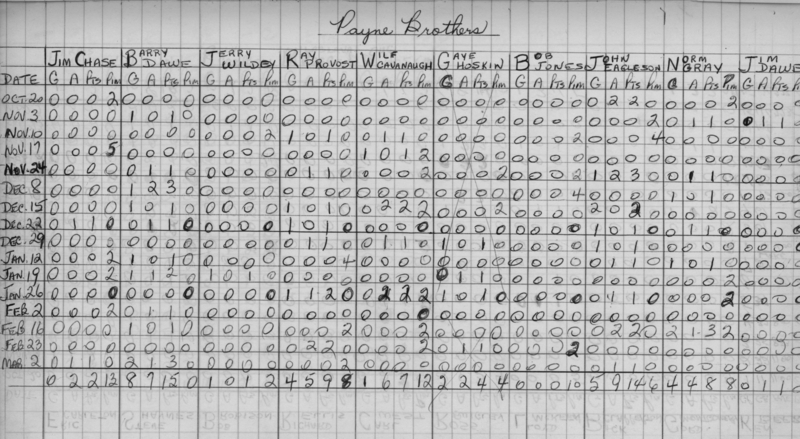 Payne Brothers
JIM CHASE BARRY DAWE JERRY WILDBY RAY PROVOST WILF CAVANAUGH GAYE HOSKIN BOB JONES JOHN EAGLESON NORM GRAY JIM DAWE
DATE G A Pts Pim G A Pts Pim G A Pts Pim G A Pts Pim G A Pts Pim G A Pts Pim G A Pts Pim G A Pts Pim G A Pts Pim G A Pts
OCT.20 0 0 0 2 0 0 0 0 0 0 0 0 0 0 0 0 0 0 0 0 0 0 0 0 0 0 0 0 0 2 2 0 0 0 0 2 0 0 0
NOV 3 0 0 0 0 1 0 1 0 0 0 0 0 0 0 0 0 0 0 0 0 0 0 0 0 0 0 0 0 0 0 0 2 0 1 1 0 0 1 1
NOV.10 0 0 0 0 0 0 0 0 0 0 0 2 1 0 1 0 0 1 1 0 0 0 0 2 0 0 0 4
NOV.17 0 0 0 5 0 0 0 0 0 0 0 0 0 0 0 0 1 0 1 2 0 0 0 0 0 0 0 0 0 0 0 0 0 0 0 0 0 0 0
NOV.24 0 0 0 0 0 1 1 0 0 0 0 0 0 1 1 0 0 0 0 2 0 0 0 2 0 0 0 2 1 2 3 0 0 1 1 0 0 0 0
DEC. 8 0 0 0 0 1 2 3 0 0 0 0 0 0 0 0 0 0 0 0 0 0 0 0 0 0 0 0 4 0 0 0 0 1 0 1 0 0 0 0
DEC.15 0 0 0 0 1 0 1 0 0 0 0 0 1 0 1 0 0 2 2 2 0 0 0 2 0 0 0 0 2 0 2 0 0 0 0 0 0 0 0
DEC.22 0 1 1 0 0 1 1 0 0 0 0 0 1 0 1 0 0 0 0 0 0 0 0 0 1 0 1 0 0 1 1 0 0 0 0
DEC.29 0 0 0 0 0 0 0 0 0 0 0 0 0 1 1 0 0 1 1 0 1 0 1 0 0 0 0 0 1 0 1 0 0 0 0 0 0 0 0
JAN.12 0 0 0 2 1 0 1 0 0 0 0 0 0 0 0 4 0 0 0 0 0 0 0 0 0 0 0 0 0 1 1 0 1 0 1 0 0 0 0
JAN.19 0 0 0 2 1 1 2 0 1 0 1 0 0 0 0 0 0 0 0 0 0 1 1 0 0 0 0 0 0 0 0 0 0 0 0 2 0 0 0
JAN.26 0 0 0 0 0 0 0 0 0 0 0 0 1 1 2 0 0 2 2 2 1 0 1 0 0 0 0 0 0 1 1 0 0 0 0 2 0 0 0
FEB.2 0 0 0 2 0 1 1 0 0 0 0 0 0 0 0 0 0 0 0 0 0 0 0 0 0 0 0 0 0 0 0 0 0 0 0 0 0 0 0
FEB 16 0 0 0 0 1 0 1 0 0 0 0 0 0 0 0 2 0 0 0 2 0 0 0 0 0 0 0 0 0 2 2 0 2 1 3 2 0 0 0
FEB 23 0 0 0 0 0 0 0 0 0 0 0 0 0 2 2 0 0 0 0 2 0 1 1 0 0 0 0 2 0 0 0 0 0 0 0 0 0 0 0
MAR 2 0 1 1 0 2 1 3 0 0 0 0 0 0 0 0 2 0 0 0 0 0 0 0 0 0 0 0 0 0 1 1 0 0 0 0 0 0 0 0
0 2 2 13 8 7 15 0 1 0 1 2 4 5 9 8 1 6 7 12 2 2 4 4 0 0 0 10 5 9 14 6 4 4 8 8 0 1 1